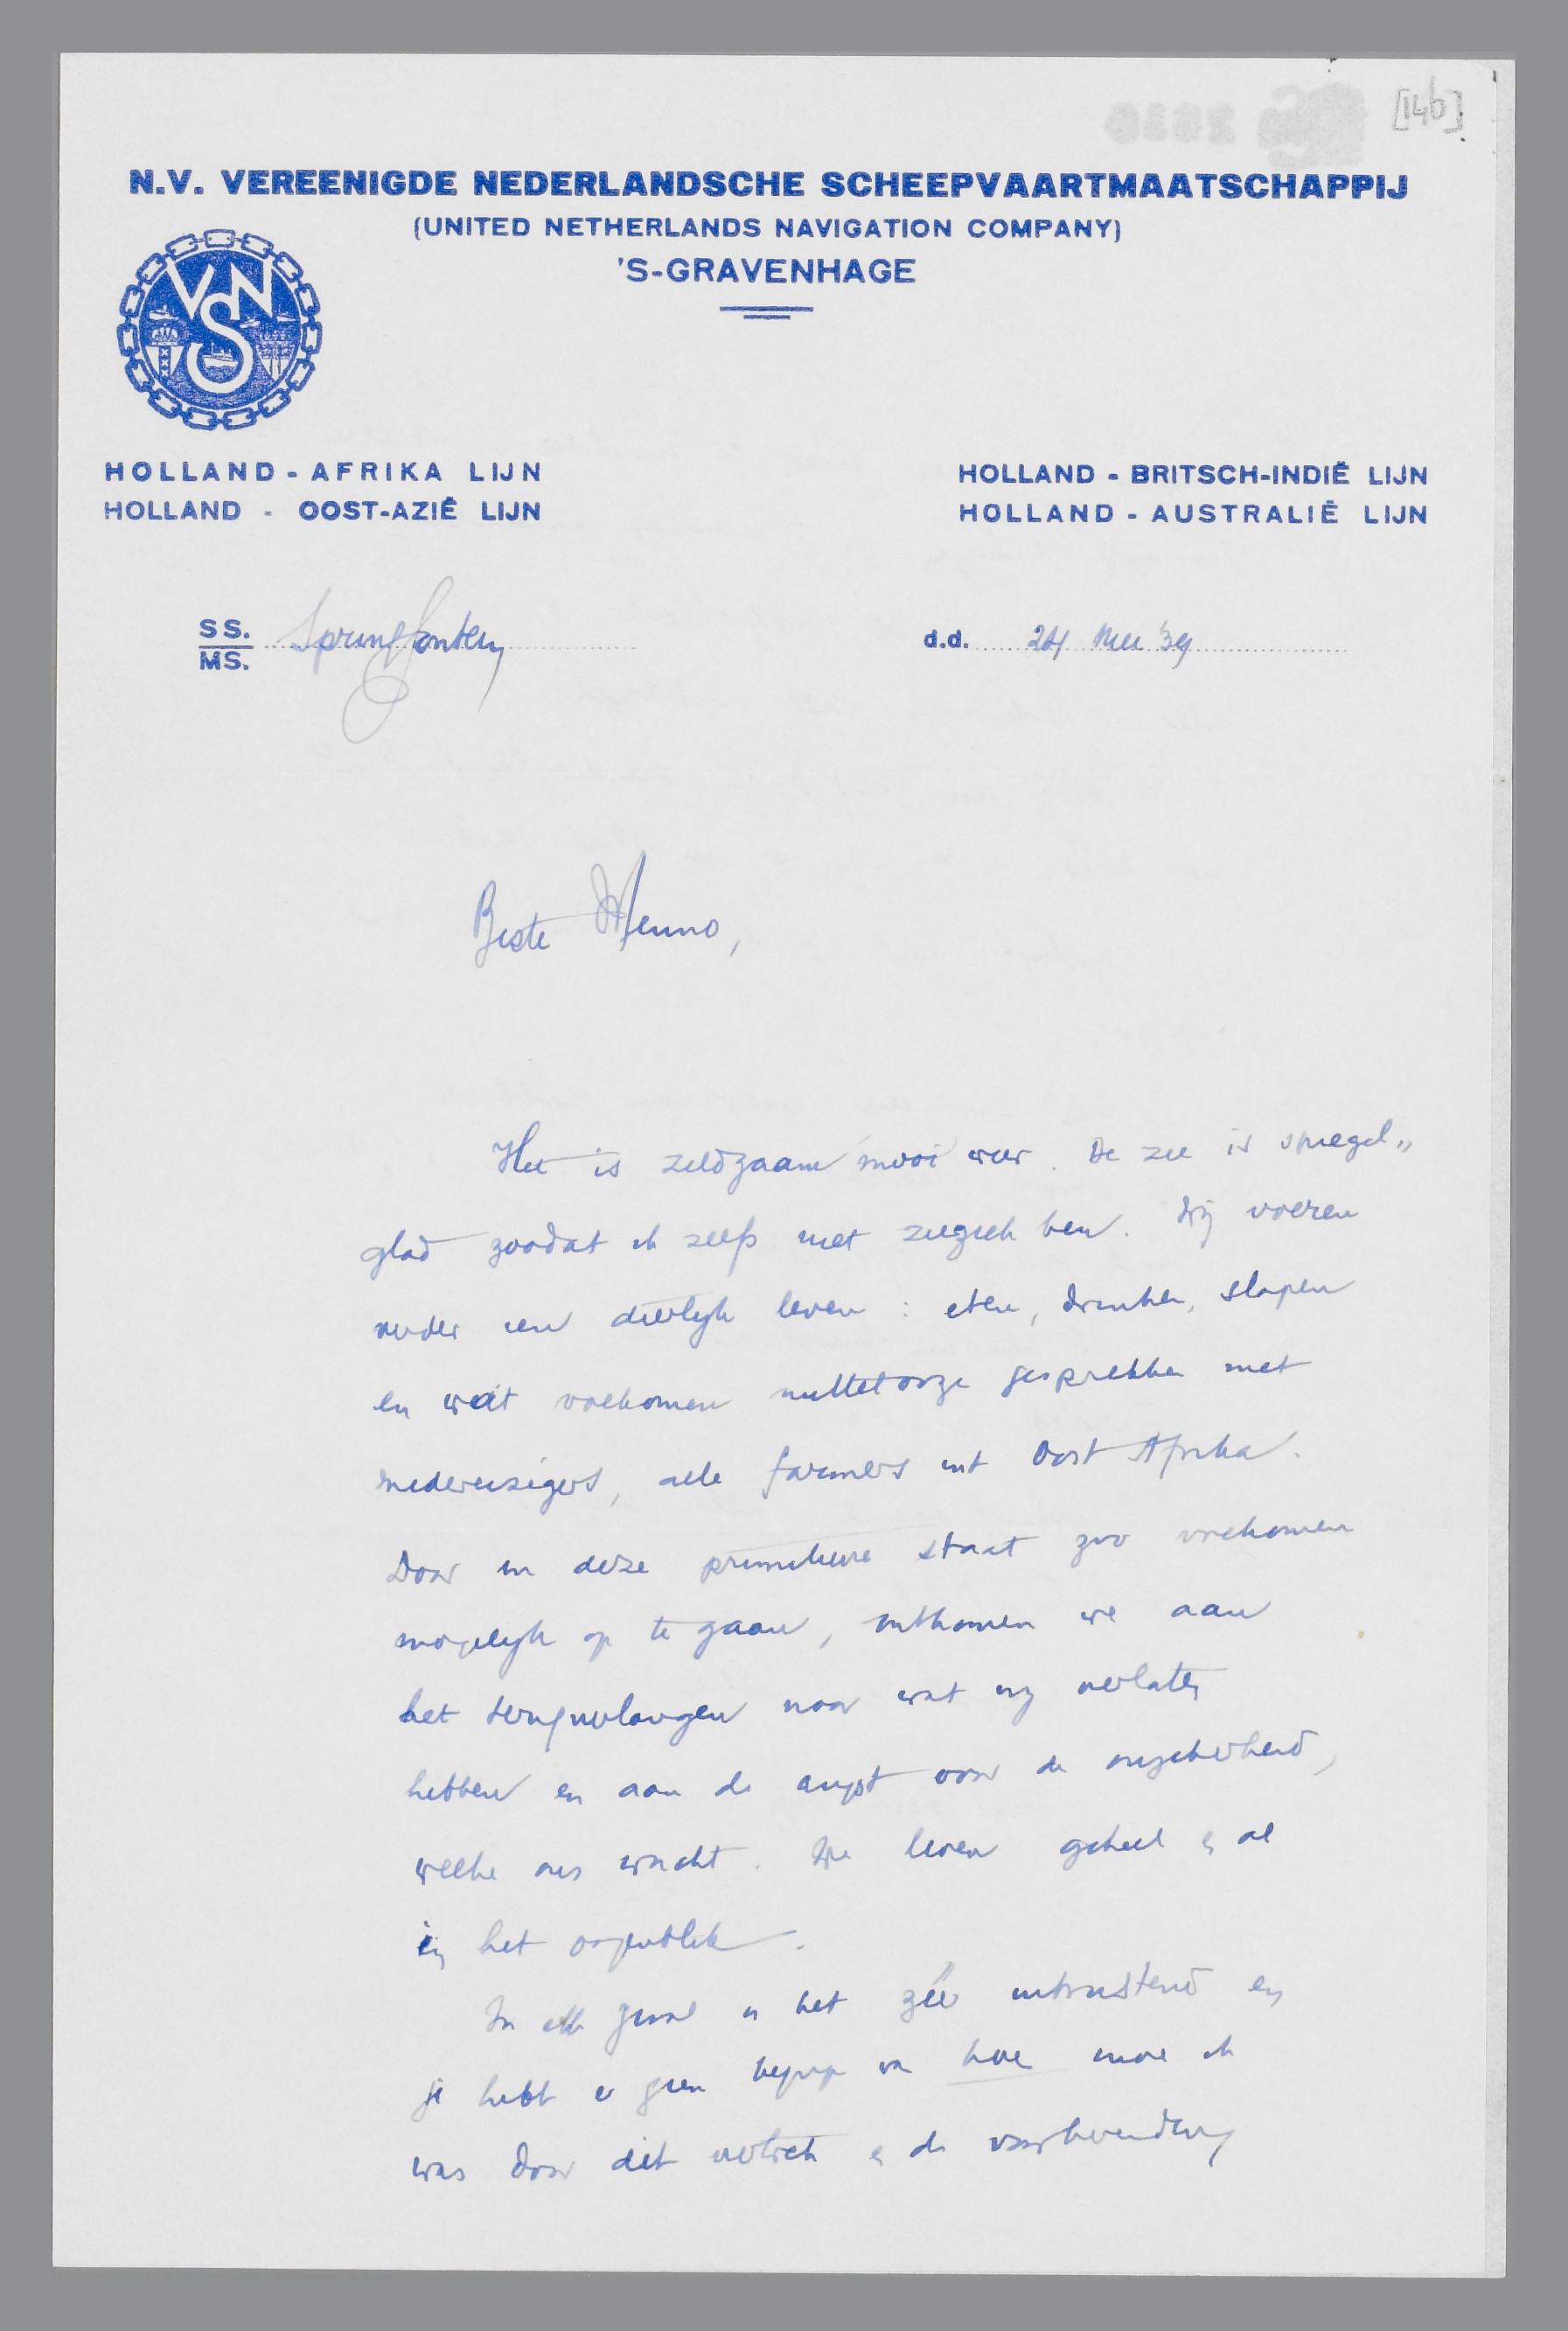 [146]
N.V. VEREENIGDE NEDERLANDSCHE SCHEEPVAARTMAATSCHAPPIJ
(UNITED NETHERLANDS NAVIGATION COMPANY)
'S-GRAVENHAGE
VNS
HOLLAND - AFRIKA LIJN
HOLLAND - OOST-AZIË LIJN
HOLLAND - BRITSCH-INDIË LIJN
HOLLAND - AUSTRALIË LIJN
SS.
MS. Springfontein
d.d. 24 Mei '39
Beste Menno,
Het is zeldzaam mooi weer. De zee is spiegel„
glad zoodat ik zelfs niet zeeziek ben. Wij voeren
verder een dierlijk leven: eten, drinken, slapen
en wat volkomen nutteloze gesprekken met
medereizigers, alle farmers uit Oost Afrika.
Door in deze primitieve staat zoo volkomen
mogelijk op te gaan, ontkomen we aan
het terugverlangen naar wat wij verlaten
hebben en aan de angst voor de onzekerheid,
welke ons wacht. We leven geheel & al
in het oogenblik.
In elk geval is het zéér uitrustend en
je hebt er geen begrip van hoe moe ik
was door dit vertrek & de voorbereiding